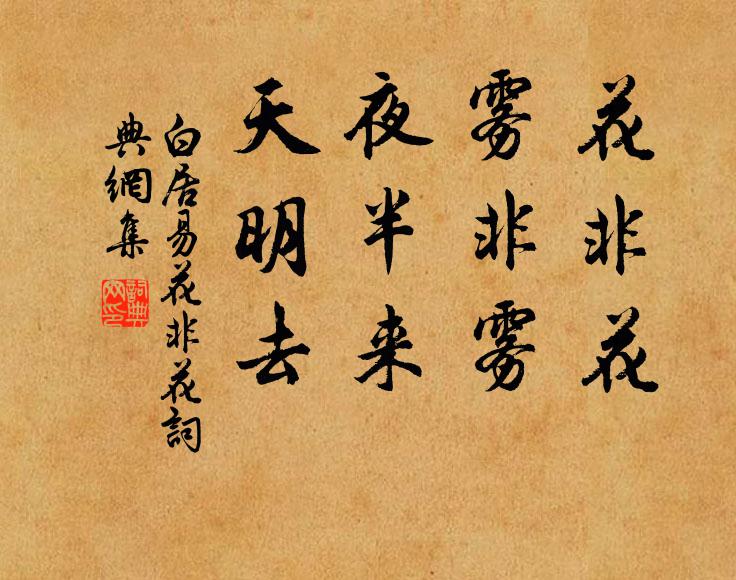 花非花
雾非雾
夜半来
天明去
白居易花非花詞
典網集
詞典
网印